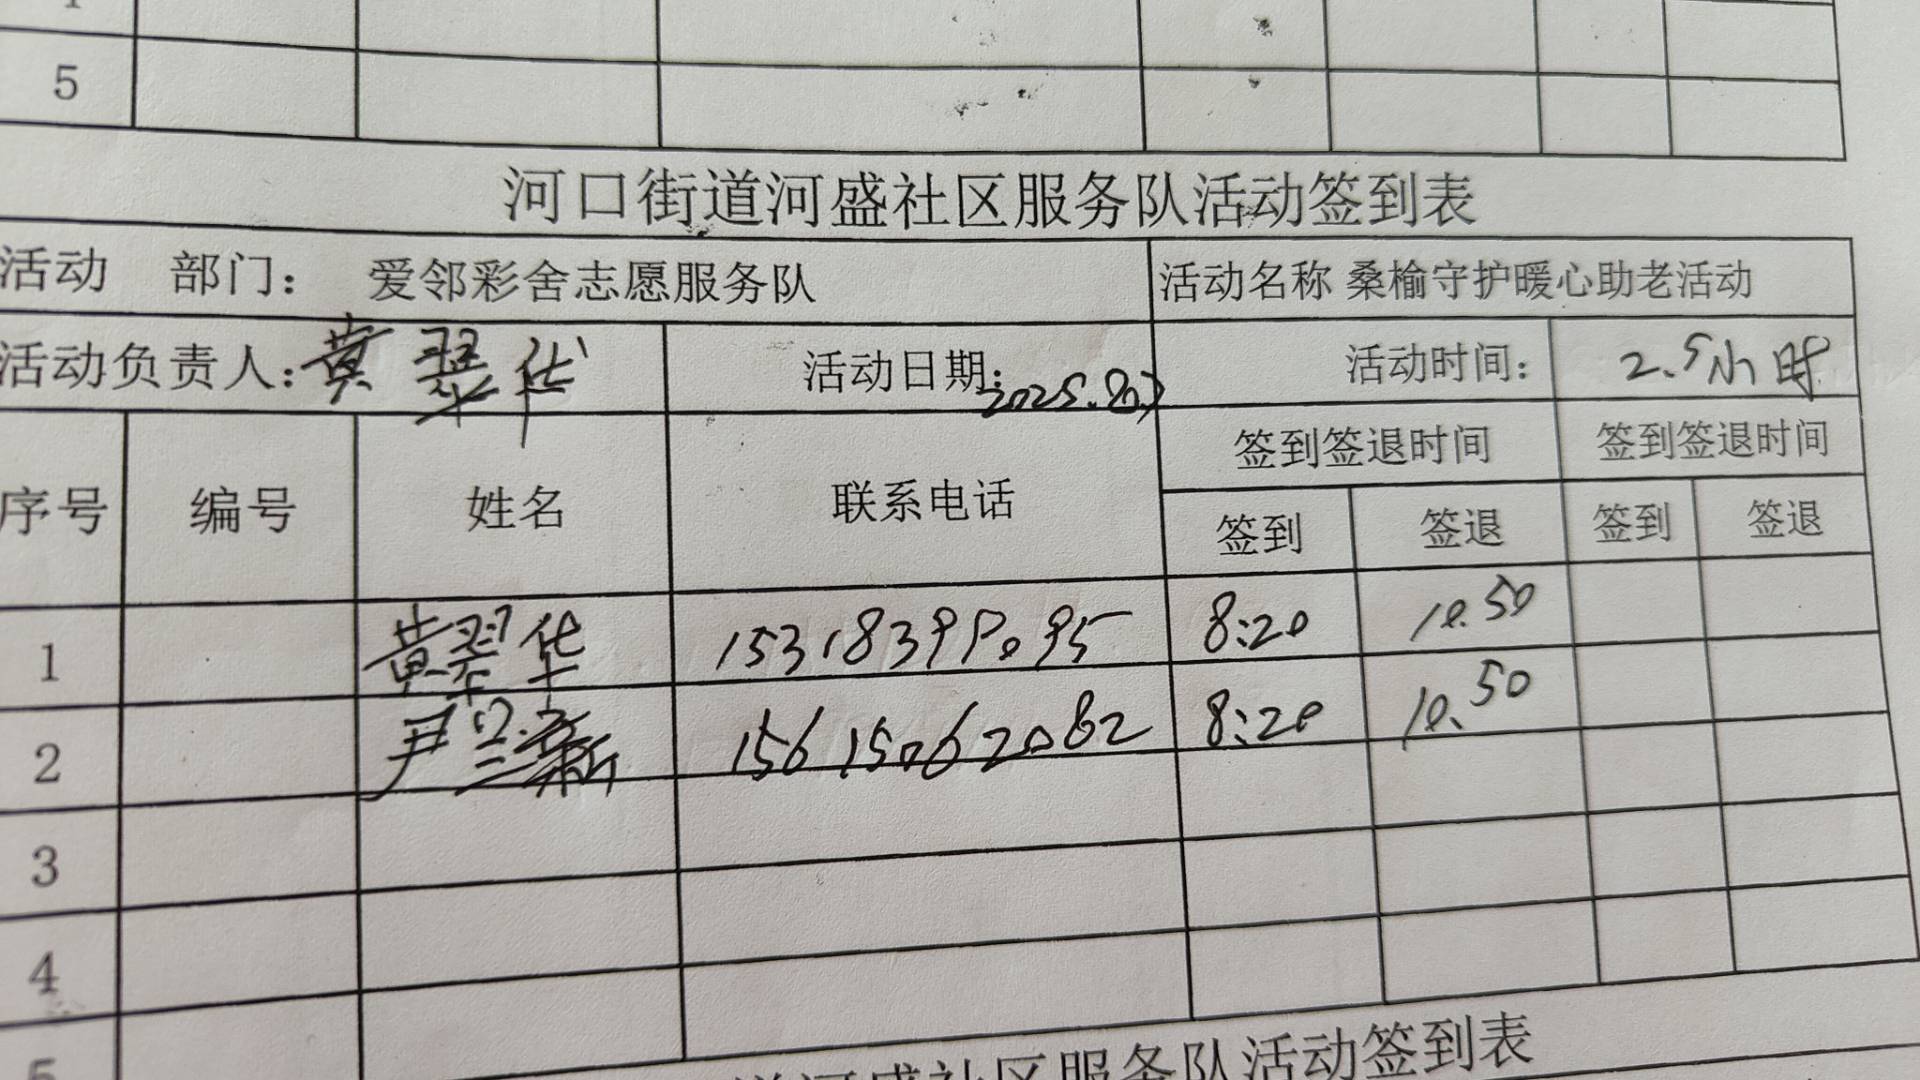 5
河口街道河盛社区服务队活动签到表
活动 部门： 爱邻彩舍志愿服务队 活动名称 桑榆守护暖心助老活动
活动负责人：黄翠华 活动日期：2025.8.7 活动时间： 2.5小时
序号 编号 姓名 联系电话 签到签退时间 签到签退时间
签到 签退 签到 签退
1 黄翠华 15318399095 8:20 10.50
2 尹 新 15615062082 8:20 10.50
3
4
5 河盛社区服务队活动签到表